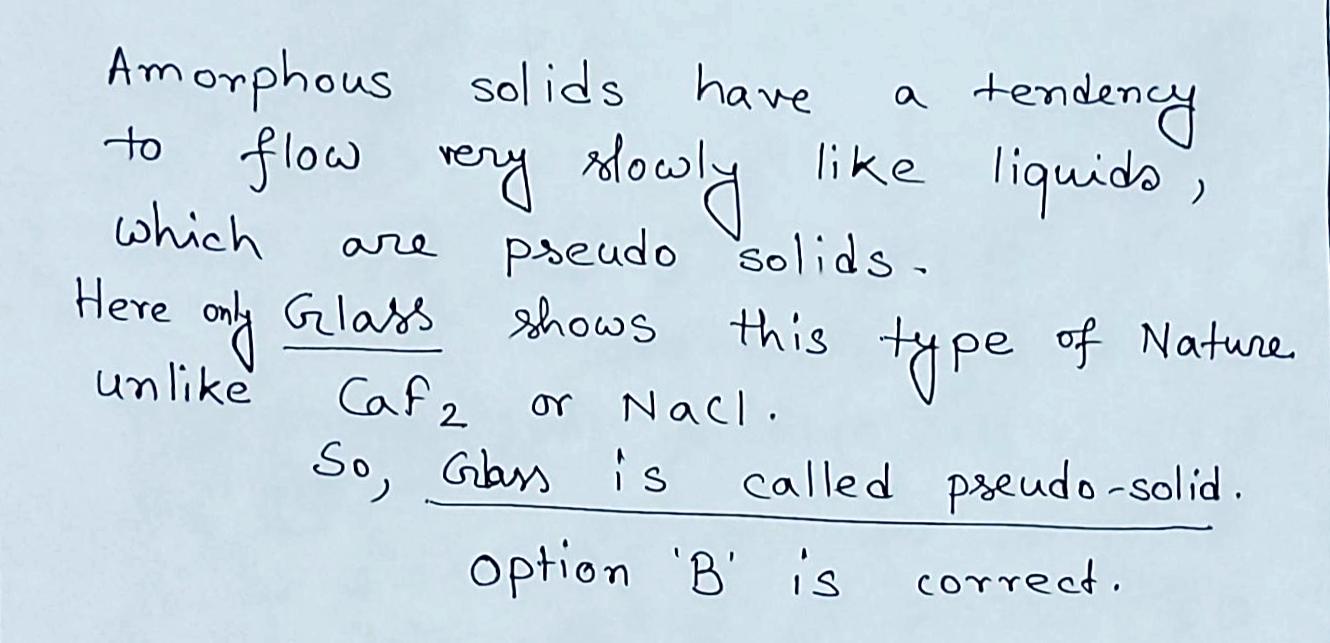 Amorphous solids have a tendency
to flow very slowly like liquids,
which are pseudo solids.
Here only Glass shows this type of Nature
unlike Caf2 or Nacl.
So, Glass is called pseudo-solid.
option 'B' is correct.